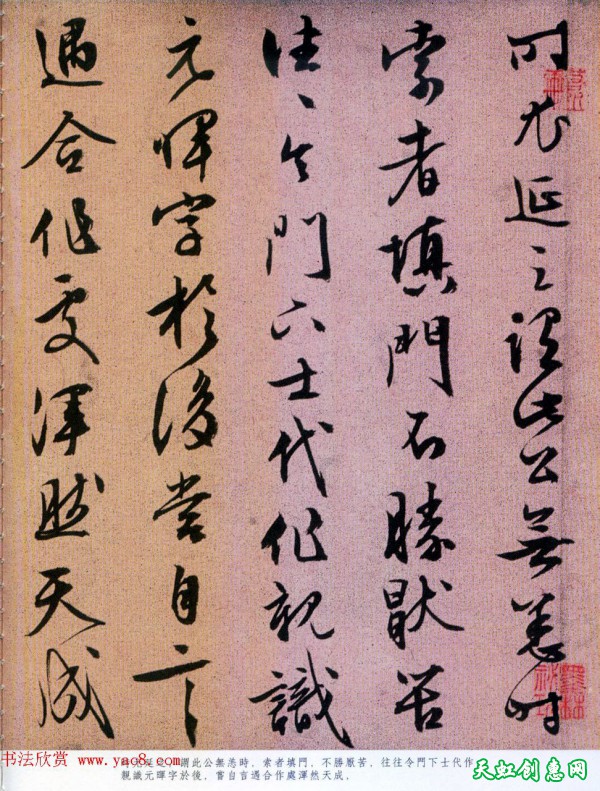 时尤延之謂此公無恙时
索者填門不勝厭苦
往々令門下士代作親識
元暉字於後嘗自言
遇合作處渾然天成
時尤延之謂此公無恙時，索者填門，不勝厭苦，往往令門下士代作
親識元暉字於後，嘗自言遇合作處渾然天成。
书法欣赏 www.yao8.com
天虹创意网